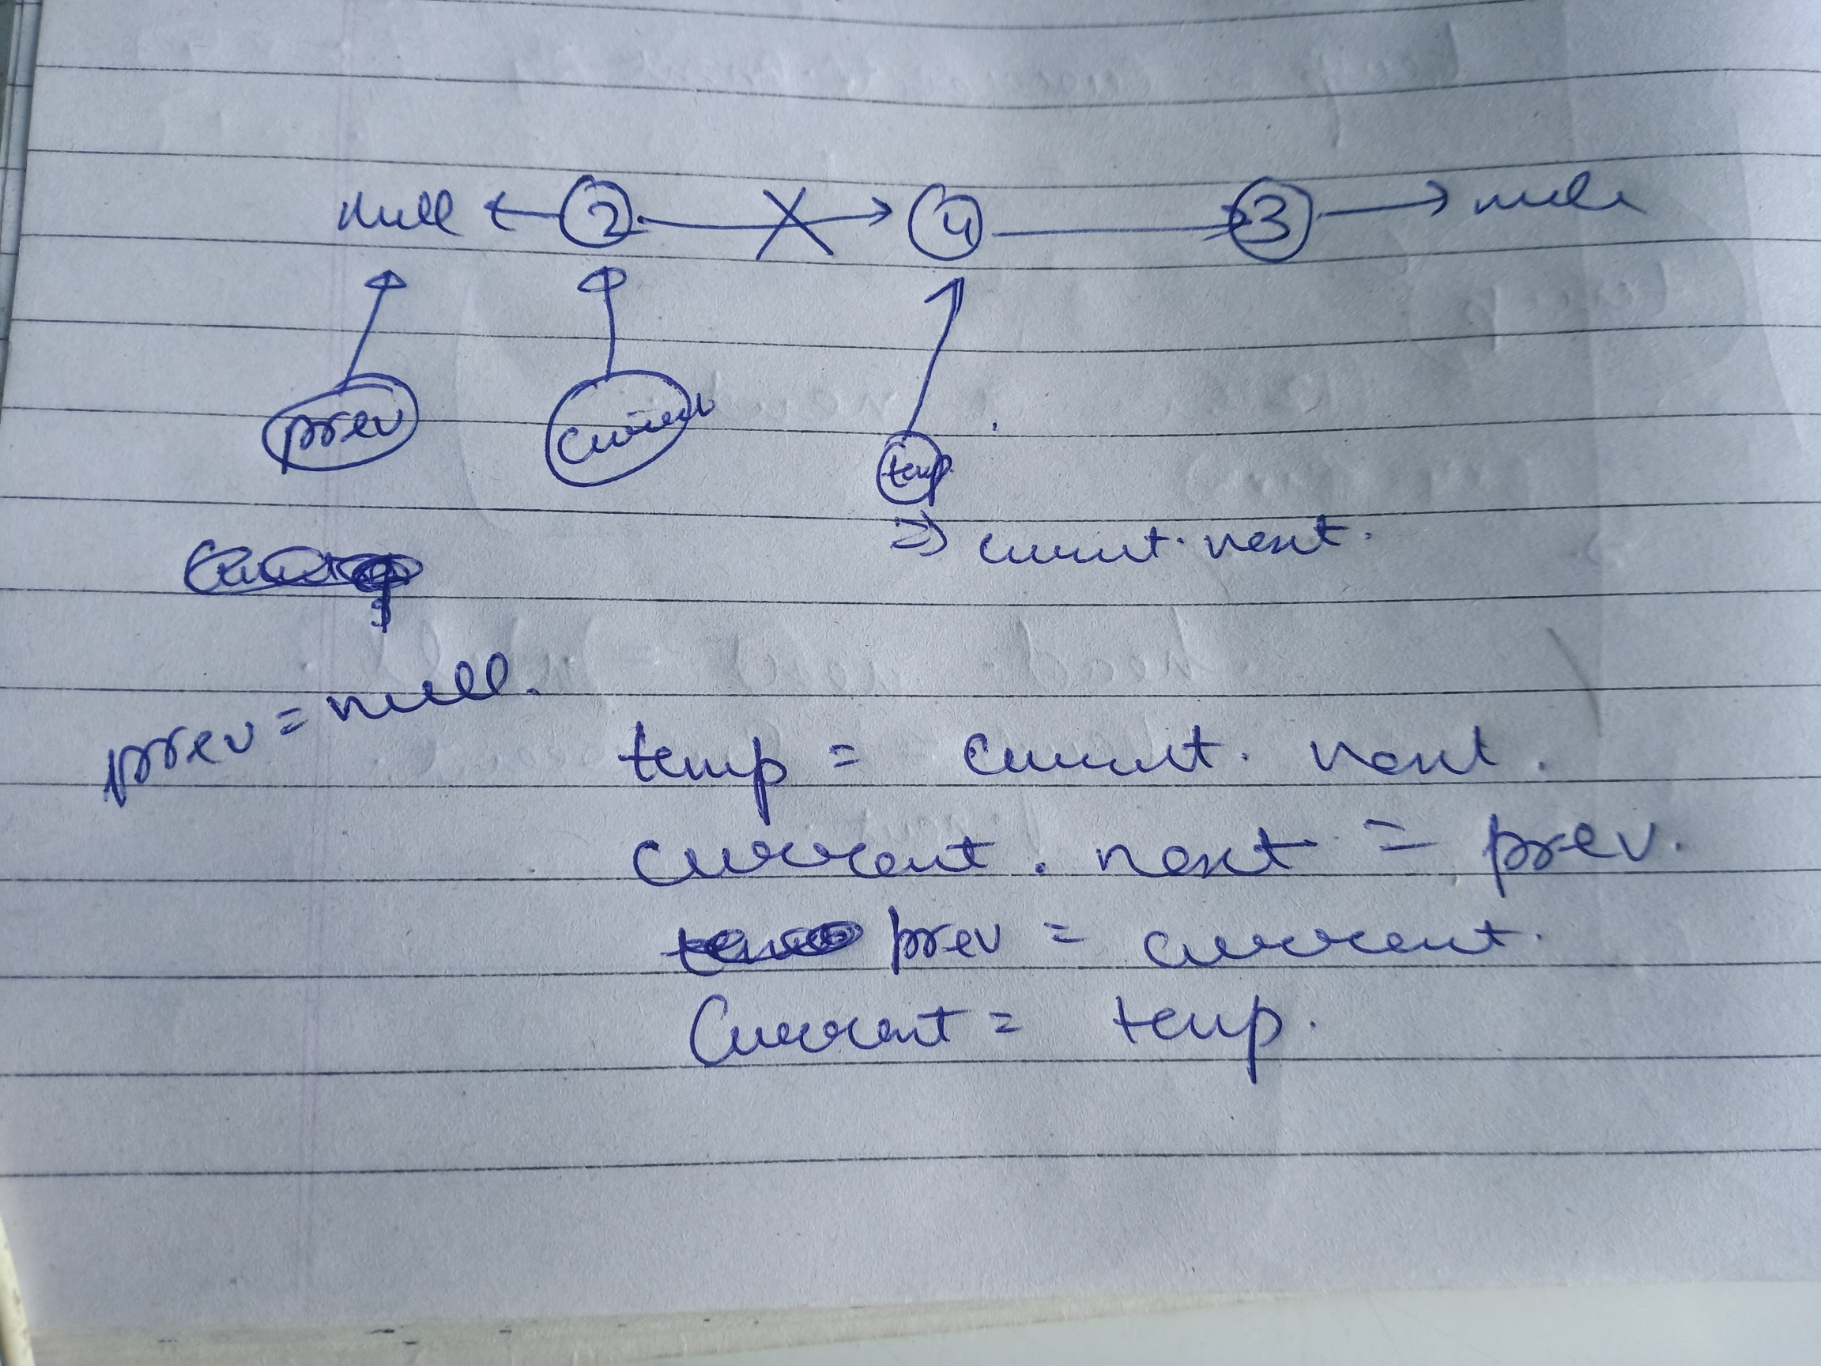 null ← 2 → 4 → 3 → null
prev current temp
⇒ current.next.
prev = null.
temp = current. next.
current. next = prev.
prev = current.
Current = temp.